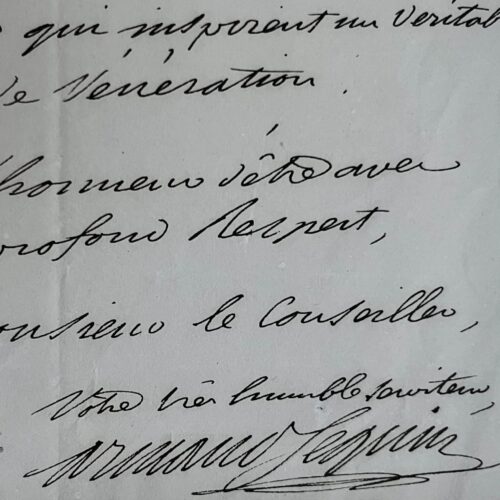 qui inspirent un véritab
de Vénération.
'honneur d'être avec
profond Respect,
onsieur le Conseiller,
Votre très humble serviteur,
Armand Seguin